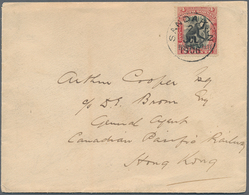 SANDAKAN
Arthur Cooper Esq
c/o D.E. Brown Esq
General Agent
Canadian Pacific Railway
Hong Kong